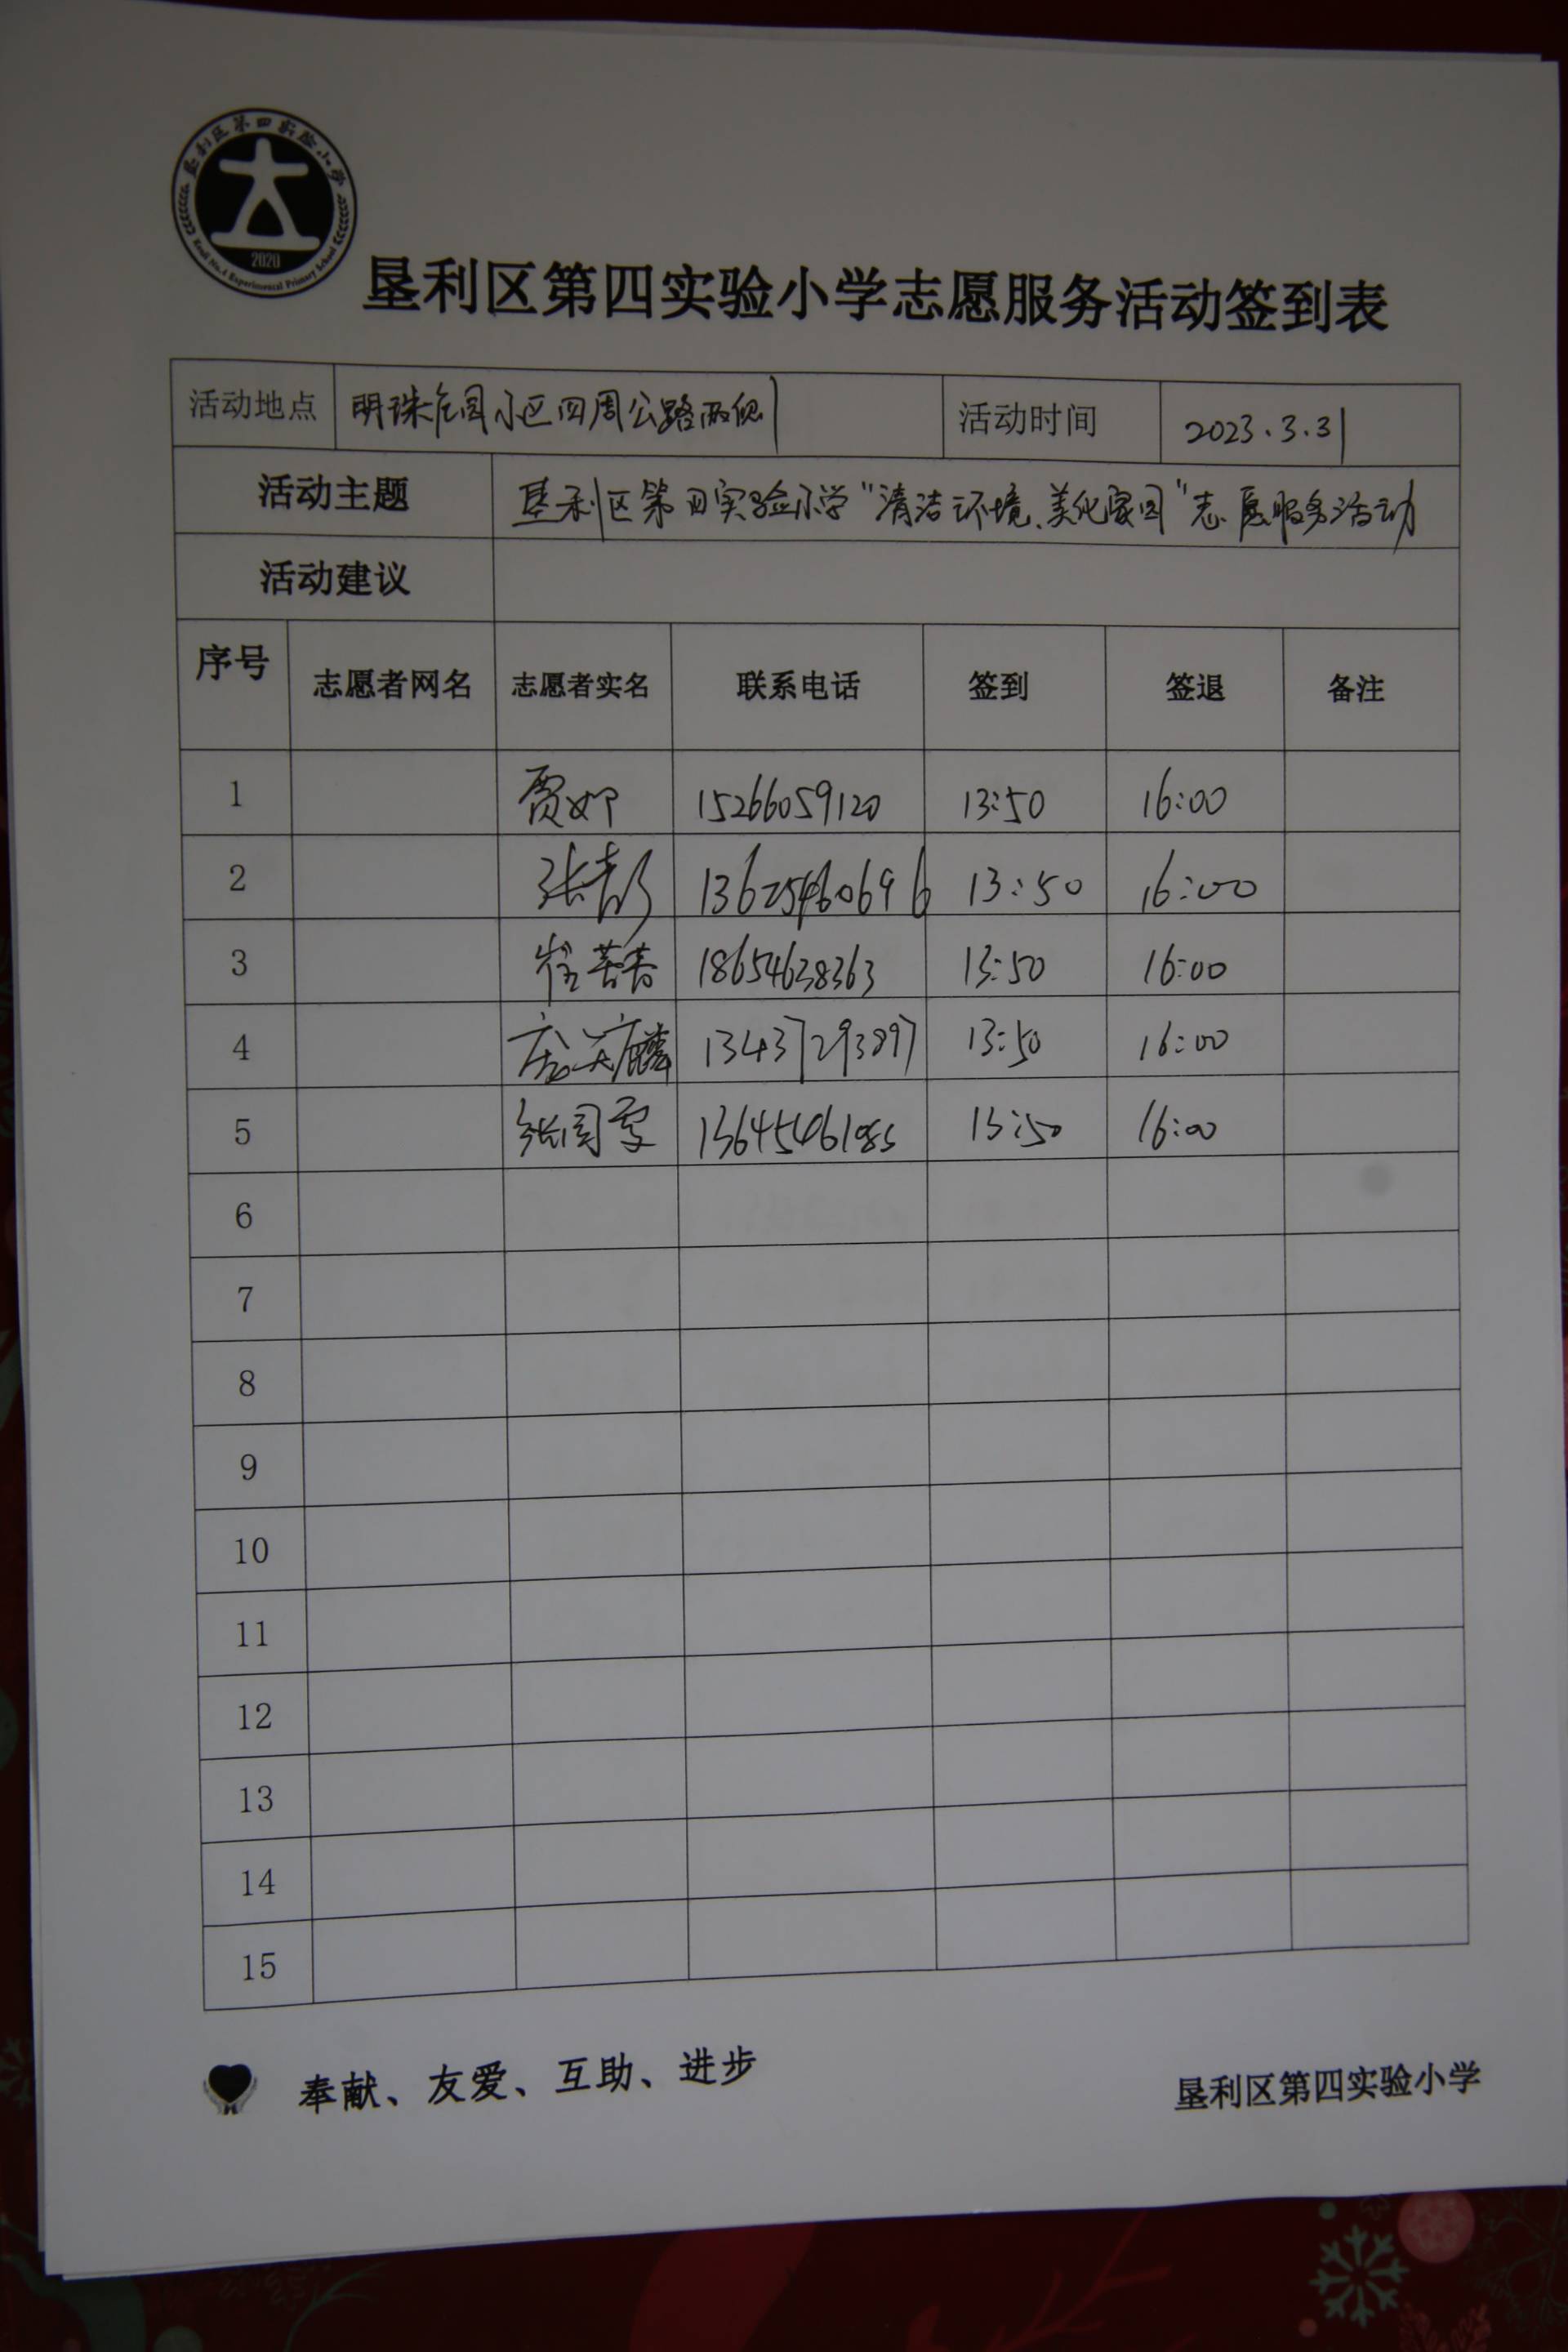 垦利区第四实验小学
2020
Kenli No.4 Experimental Primary School
垦利区第四实验小学志愿服务活动签到表
活动地点 明珠花园小区四周公路两侧 活动时间 2023.3.31
活动主题 垦利区第四实验小学"清洁环境、美化家园"志愿服务活动
活动建议
序号 志愿者网名 志愿者实名 联系电话 签到 签退 备注
1 贾如 15266059120 13:50 16:00
2 张彦 13625460696 13:50 16:00
3 崔菁菁 18654638363 13:50 16:00
4 麟 13437293897 13:50 16:00
5 张园雪 13645461085 13:50 16:00
6
7
8
9
10
11
12
13
14
15
奉献、友爱、互助、进步 垦利区第四实验小学